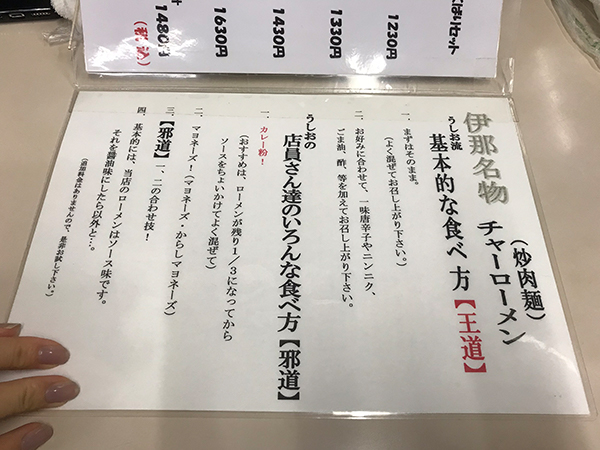 ばりセット
1230円
1330円
1430円
1630円
1480円
(税込)
伊那名物 チャーローメン
(炒肉麺)
うしお流 基本的な食べ方【王道】
一、まずはそのまま。
(よく混ぜてお召し上がり下さい。)
二、お好みに合わせて、一味唐辛子やニンニク、
ごま油、酢、等を加えてお召し上がり下さい。
うしおの 店員さん達のいろんな食べ方【邪道】
一、カレー粉！
(おすすめは、ローメンが残り1/3になってから
ソースをちょいかけてよく混ぜて)
二、マヨネーズ！(マヨネーズ・からしマヨネーズ)
三、【邪道】一、二の合わせ技！
四、基本的には、当店のローメンはソース味です。
それを醤油味にしたら以外と…。
(追加料金はありませんので、是非お試し下さい。)